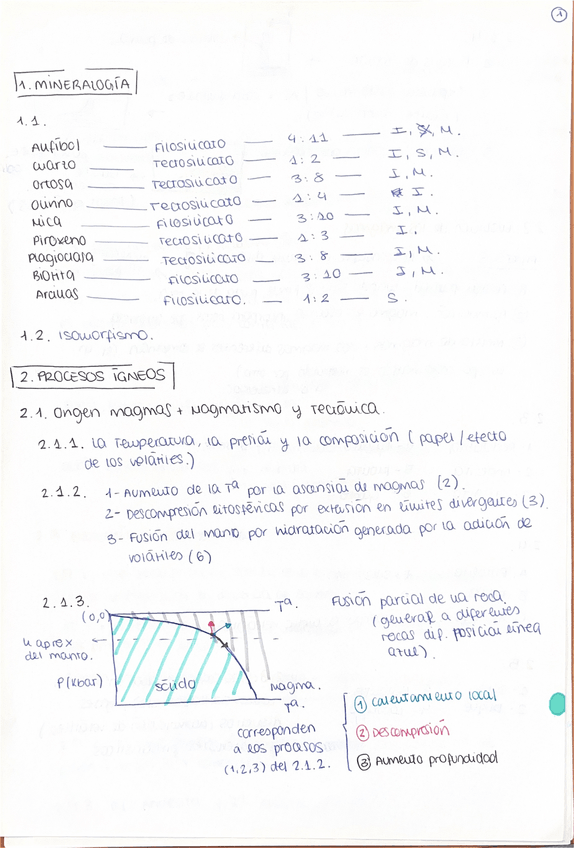 1
1. MINERALOGÍA
1.1.
Anfíbol — Filosilicato — 4:11 — I, S, M.
Cuarzo — Tectosilicato — 1:2 — I, S, M.
Ortosa — Tectosilicato — 3:8 — I, M.
Olivino — Tectosilicato — 1:4 — I.
Mica — Filosilicato — 3:10 — I, M.
Piroxeno — Tectosilicato — 1:3 — I.
Plagioclasa — Tectosilicato — 3:8 — I, M.
Biotita — Filosilicato — 3:10 — I, M.
Arcillas — Filosilicato. — 1:2 — S.
1.2. Isomorfismo.
2. PROCESOS ÍGNEOS
2.1. Origen magmas + Magmatismo y Tectónica.
2.1.1. La Temperatura, la presión y la composición (papel/efecto
de los volátiles.)
2.1.2. 1- Aumento de la Tª por la ascensión de magmas (2).
2- Descompresión litosféricas por extensión en límites divergentes (3).
3- Fusión del manto por hidratación generada por la adición de
volátiles (6)
2.1.3.
(0,0)
Tª.
Fusión parcial de una roca.
(general a diferentes
rocas dif. posición línea
azul).
aprox
del manto.
P(Kbar)
sólido
magma.
Tª.
corresponden
a los procesos
(1,2,3) del 2.1.2.
1 calentamiento local
2 Descompresión
3 Aumento profundidad